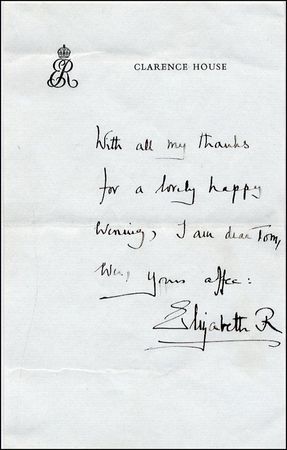 ER
CLARENCE HOUSE
With all my thanks
for a lovely happy
evening, I am dear Tom,
yours affec:
Elizabeth R